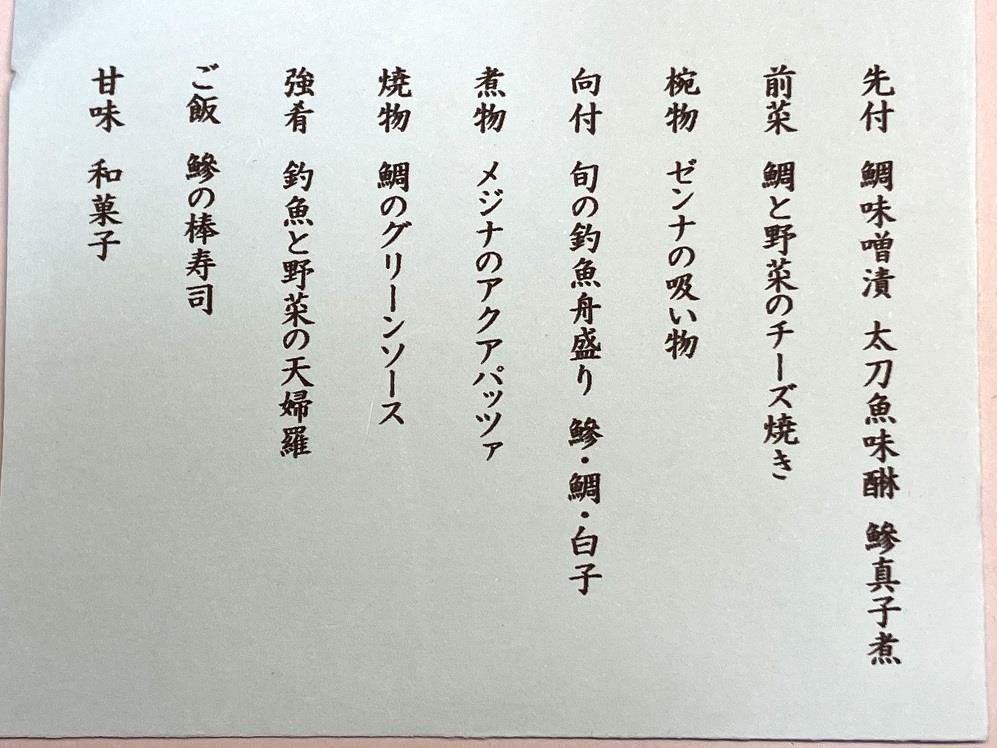 先付 鯛味噌漬 太刀魚味醂 鰺真子煮
前菜 鯛と野菜のチーズ焼き
椀物 ゼンナの吸い物
向付 旬の釣魚舟盛り 鰺・鯛・白子
煮物 メジナのアクアパッツァ
焼物 鯛のグリーンソース
強肴 釣魚と野菜の天婦羅
ご飯 鰺の棒寿司
甘味 和菓子